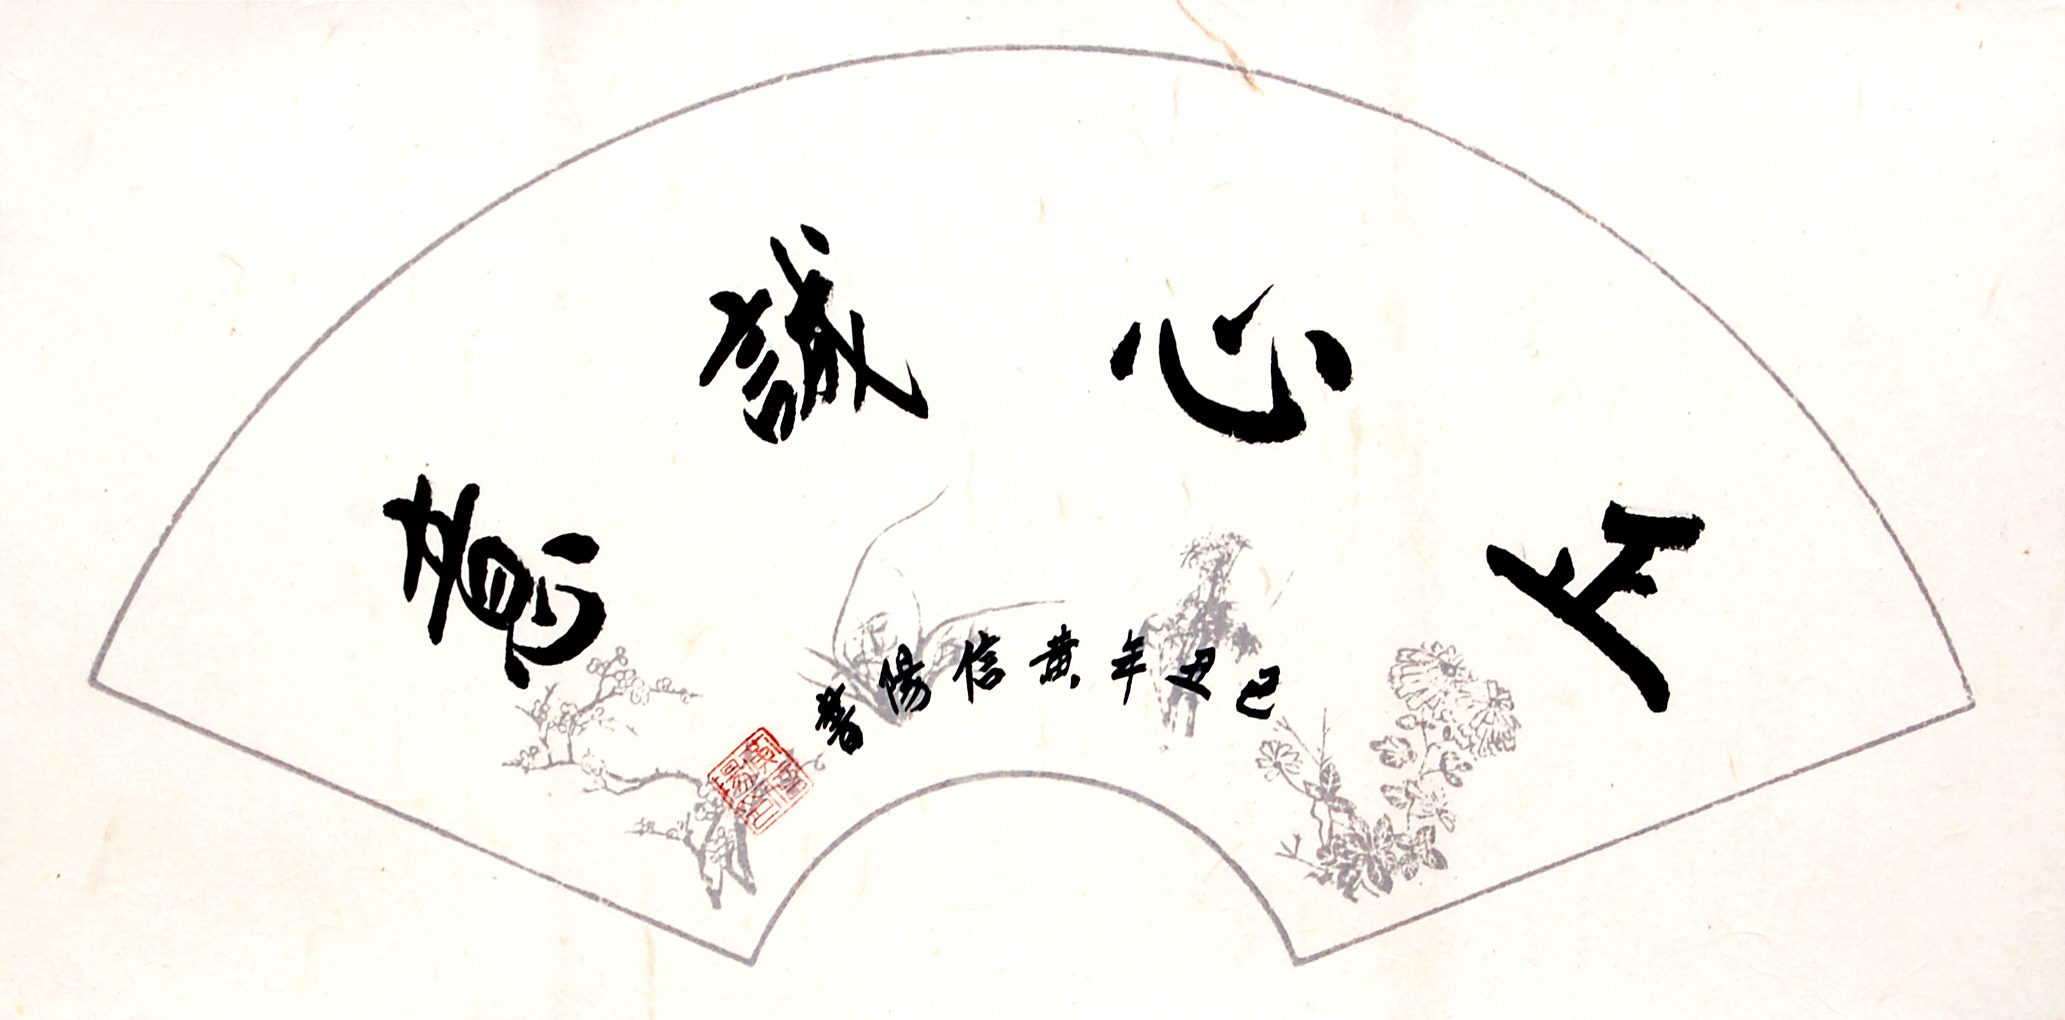 正心誠意
己丑年黄信陽書